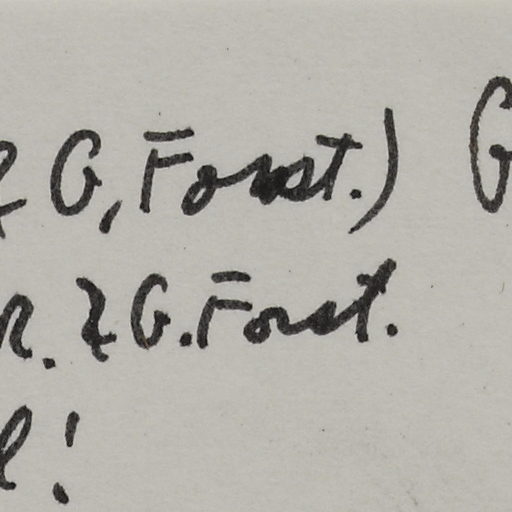 & G. Forst.) G
R. & G. Forst.
l!